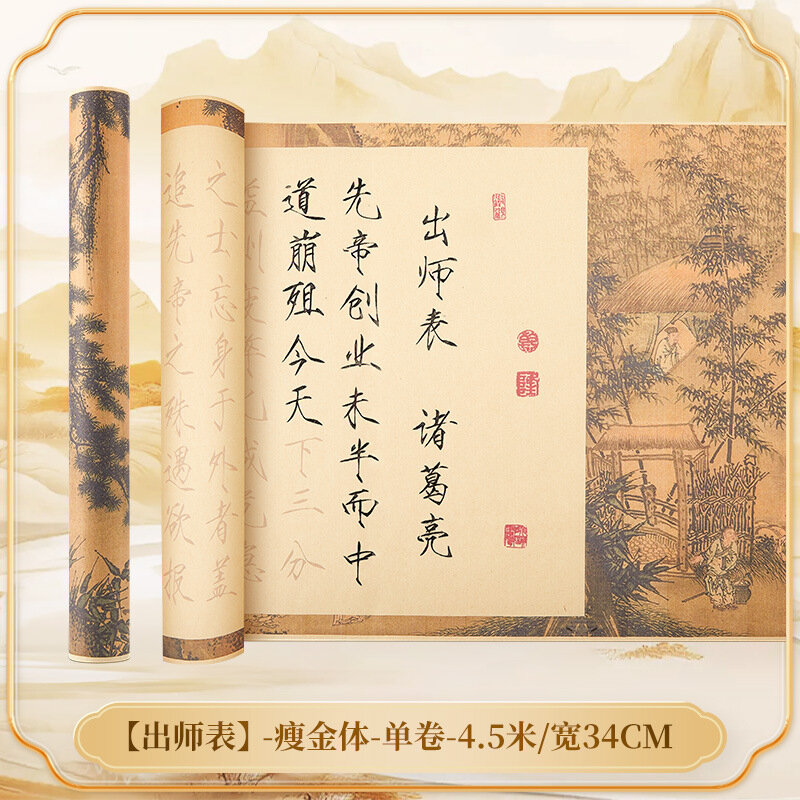 出师表 诸葛亮
先帝创业未半而中
道崩殂今天下三分
之士忘身于外者盖
追先帝之殊遇欲报
【出师表】-瘦金体-单卷-4.5米/宽34CM